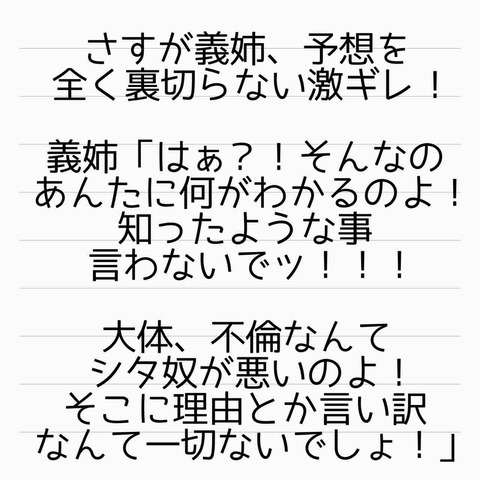 さすが義姉、予想を
全く裏切らない激ギレ！
義姉「はぁ？！そんなの
あんたに何がわかるのよ！
知ったような事
言わないでッ！！！
大体、不倫なんて
シタ奴が悪いのよ！
そこに理由とか言い訳
なんて一切ないでしょ！」